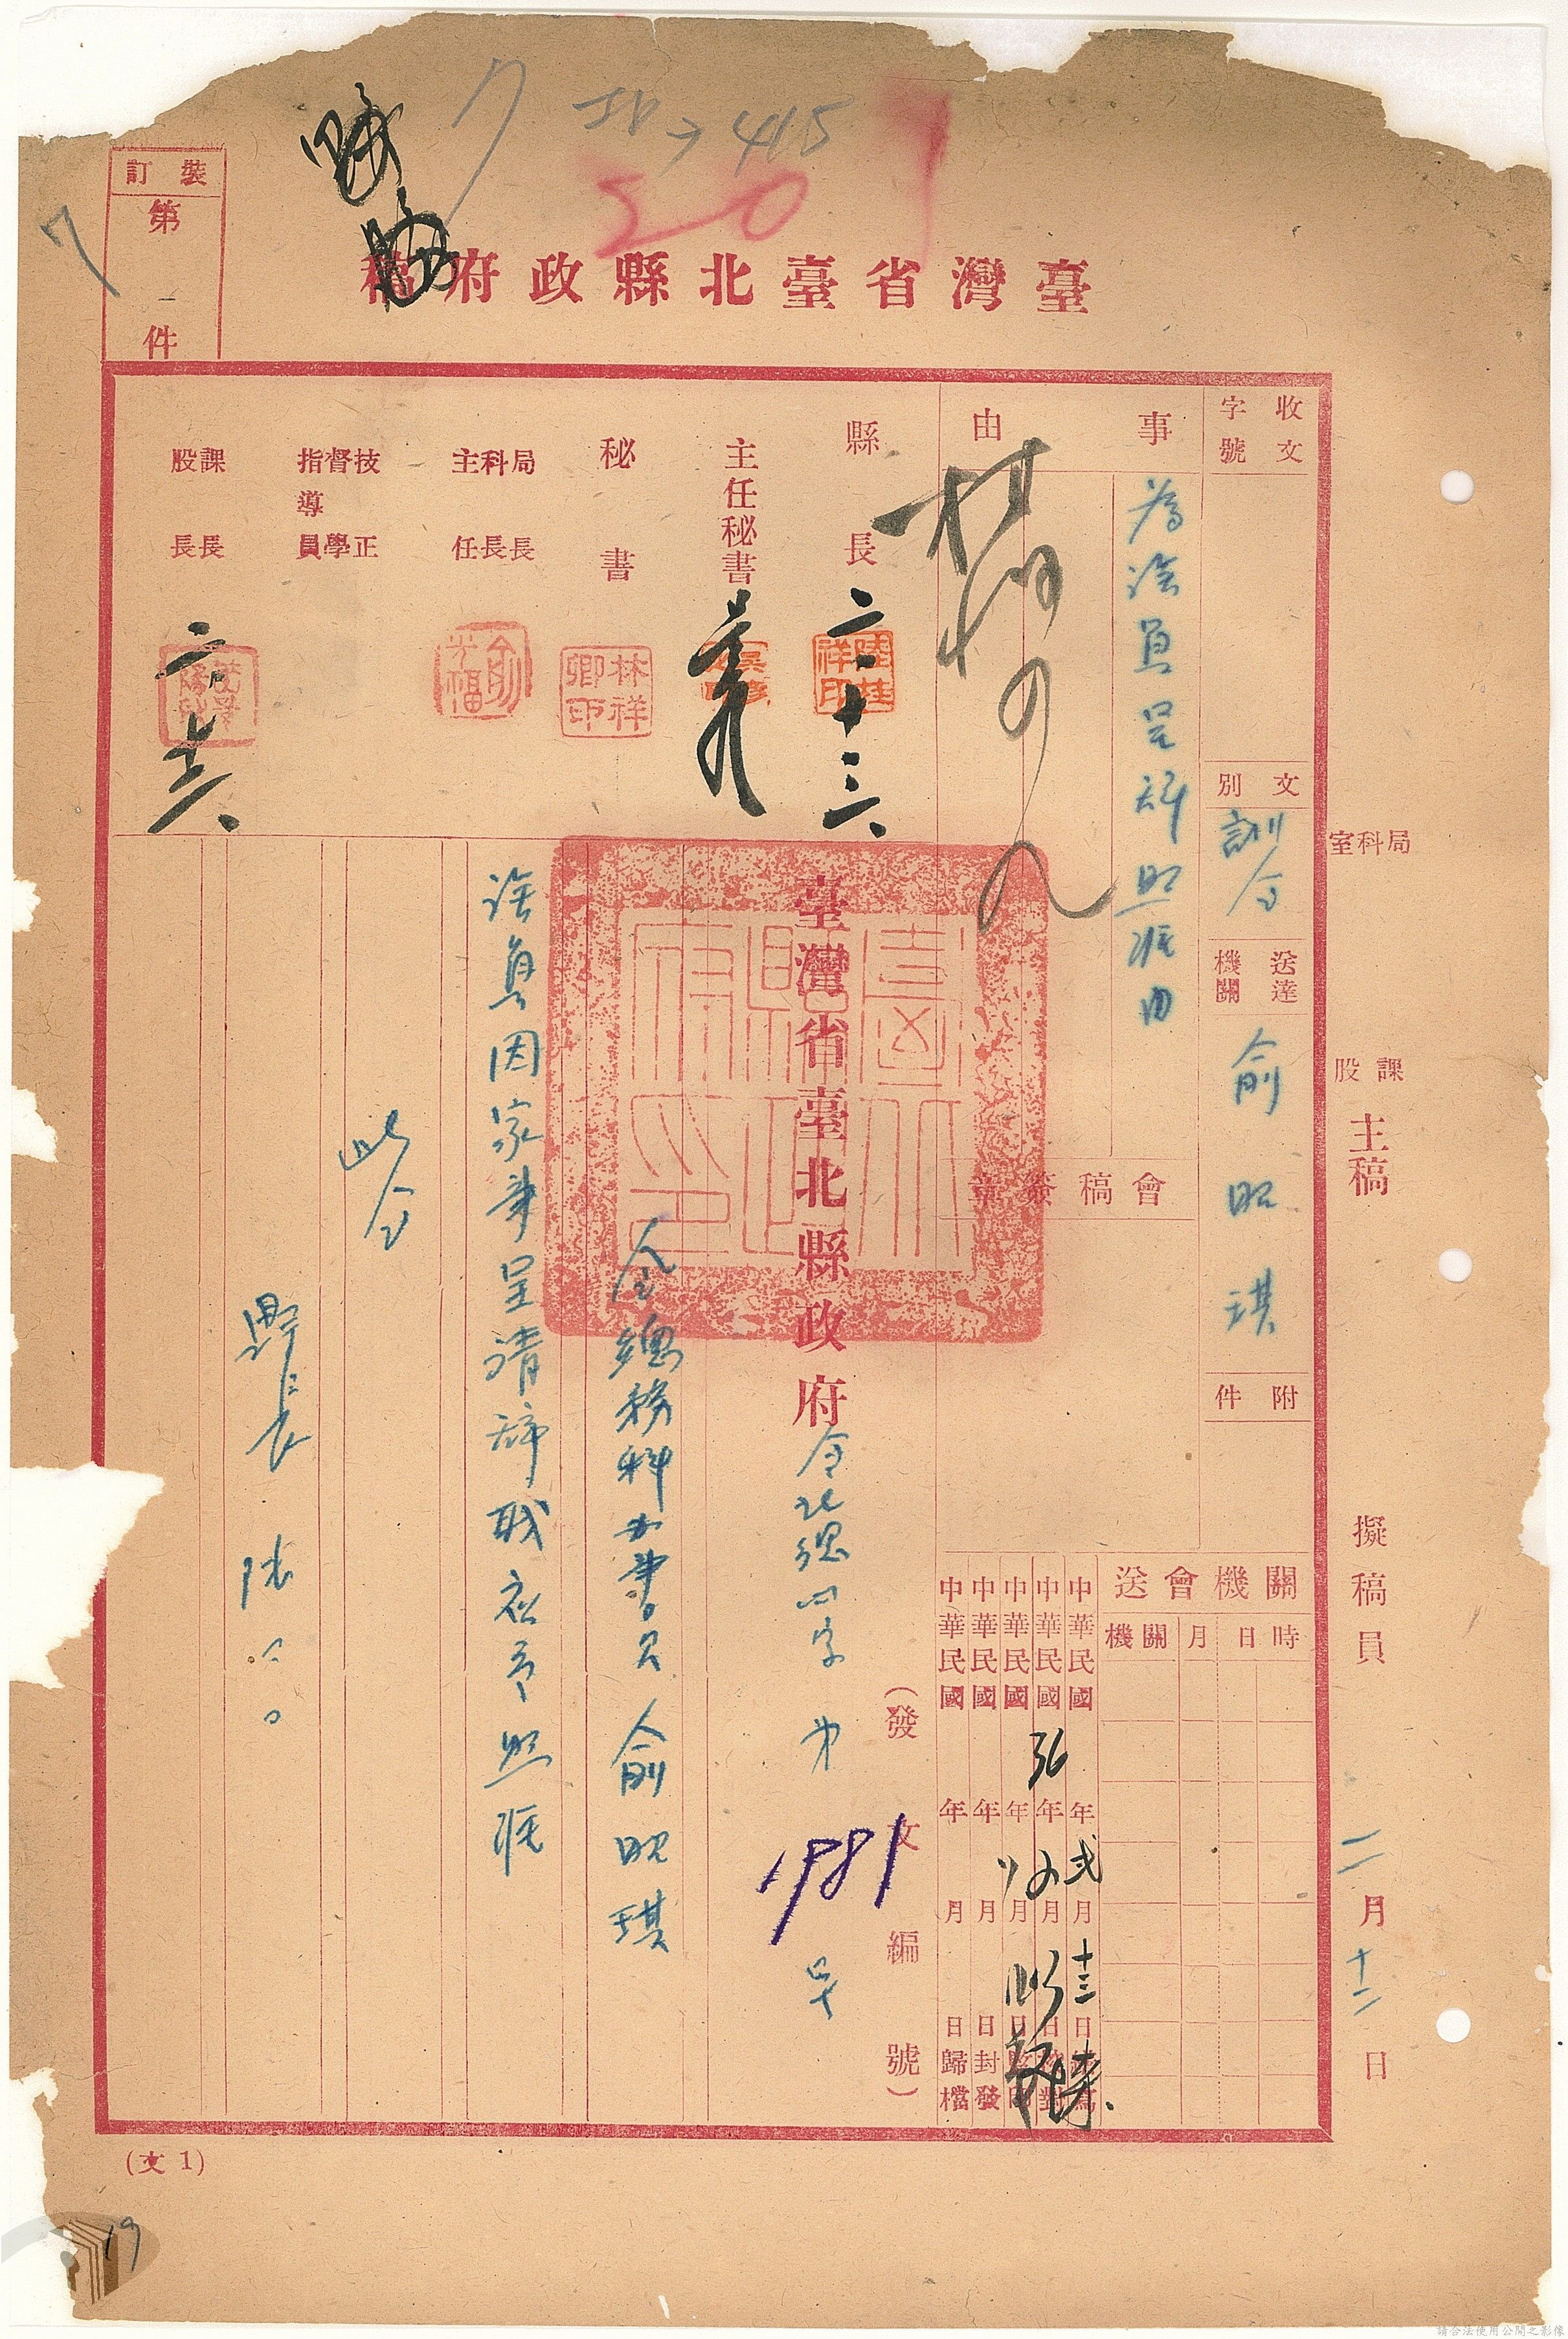 415
20
臺灣省臺北縣政府稿
裝訂
第一件
收文
字號
文別
訓令
送達
機關
俞昭琪
附件
事由
為該員呈辞照准由
會稿簽章
縣長
二、十三、
陸桂祥印
主任秘書
秘書
林祥卿印
局科主
長長任
俞光福
技督指
導
正學員
課股
長長
局科室
課股
主稿
擬稿員
二月十二日
關機會送
時日月關機
中華民國 年弍月十三日繕寫
中華民國36年 月 日校對
中華民國 年 月 日蓋印
中華民國 年 月 日封發
中華民國 年 月 日歸檔
(發文編號)
臺灣省臺北縣政府令北總四字第1981号
令總務科办事員俞昭琪
該員因家事呈請辞职应予照准
此令
縣長陸〇〇
(文1)
19
請合法使用公開之影像